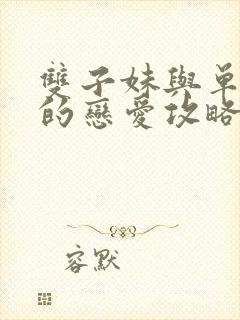 雙子妹與單
的戀愛攻略
容默